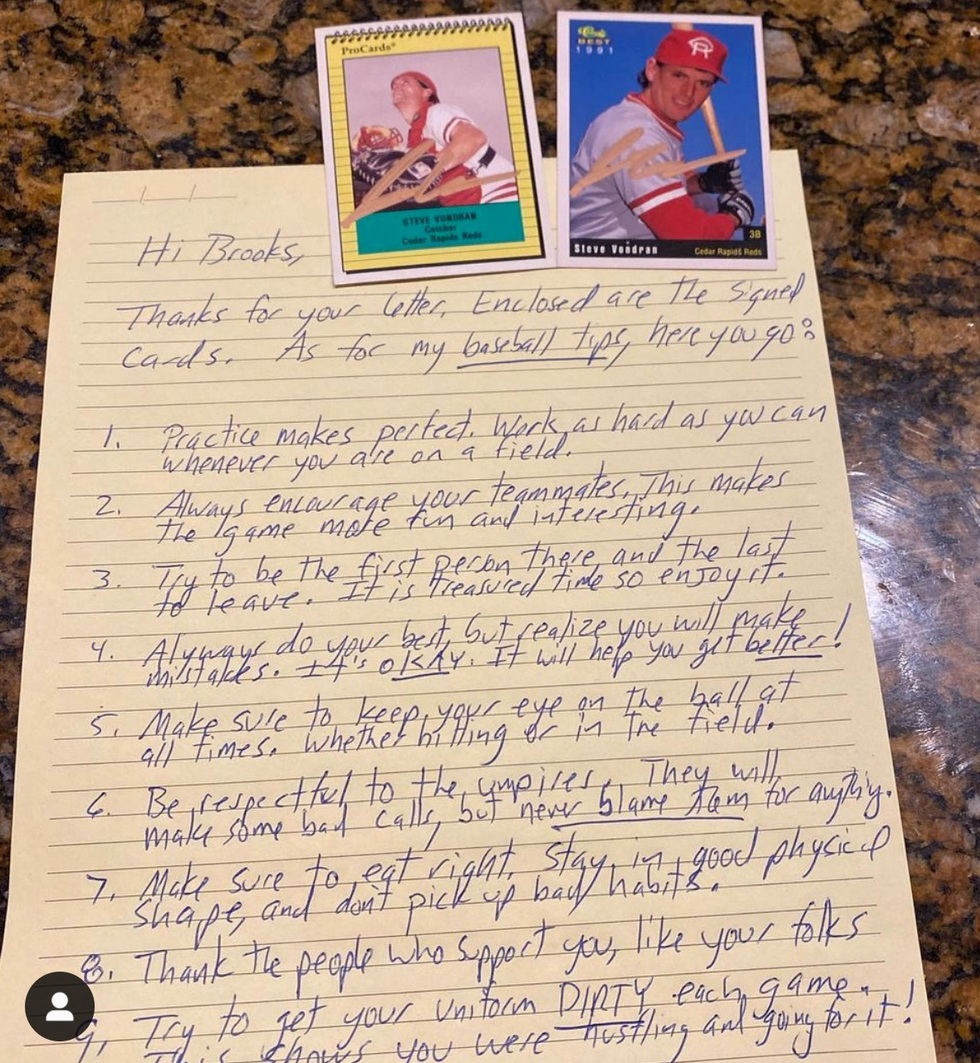 ProCards®
STEVE VONDRAN
Catcher
Cedar Rapids Reds
Classic
BEST
1991
CR
3B
Steve Vondran
Cedar Rapids Reds
Hi Brooks,
Thanks for your letter. Enclosed are the signed
cards. As for my baseball tips, here you go:
1. Practice makes perfect. Work as hard as you can
whenever you are on a field.
2. Always encourage your teammates. This makes
the game more fun and interesting.
3. Try to be the first person there and the last
to leave. It is treasured time so enjoy it.
4. Always do your best, but realize you will make
mistakes. It's OKAY. It will help you get better!
5. Make sure to keep your eye on the ball at
all times. Whether hitting or in the field.
6. Be respectful to the umpires. They will
make some bad calls, but never blame them for anything.
7. Make sure to eat right. Stay in good physical
shape, and don't pick up bad habits.
8. Thank the people who support you, like your folks
9. Try to get your uniform DIRTY each game.
This shows you were hustling and going for it!